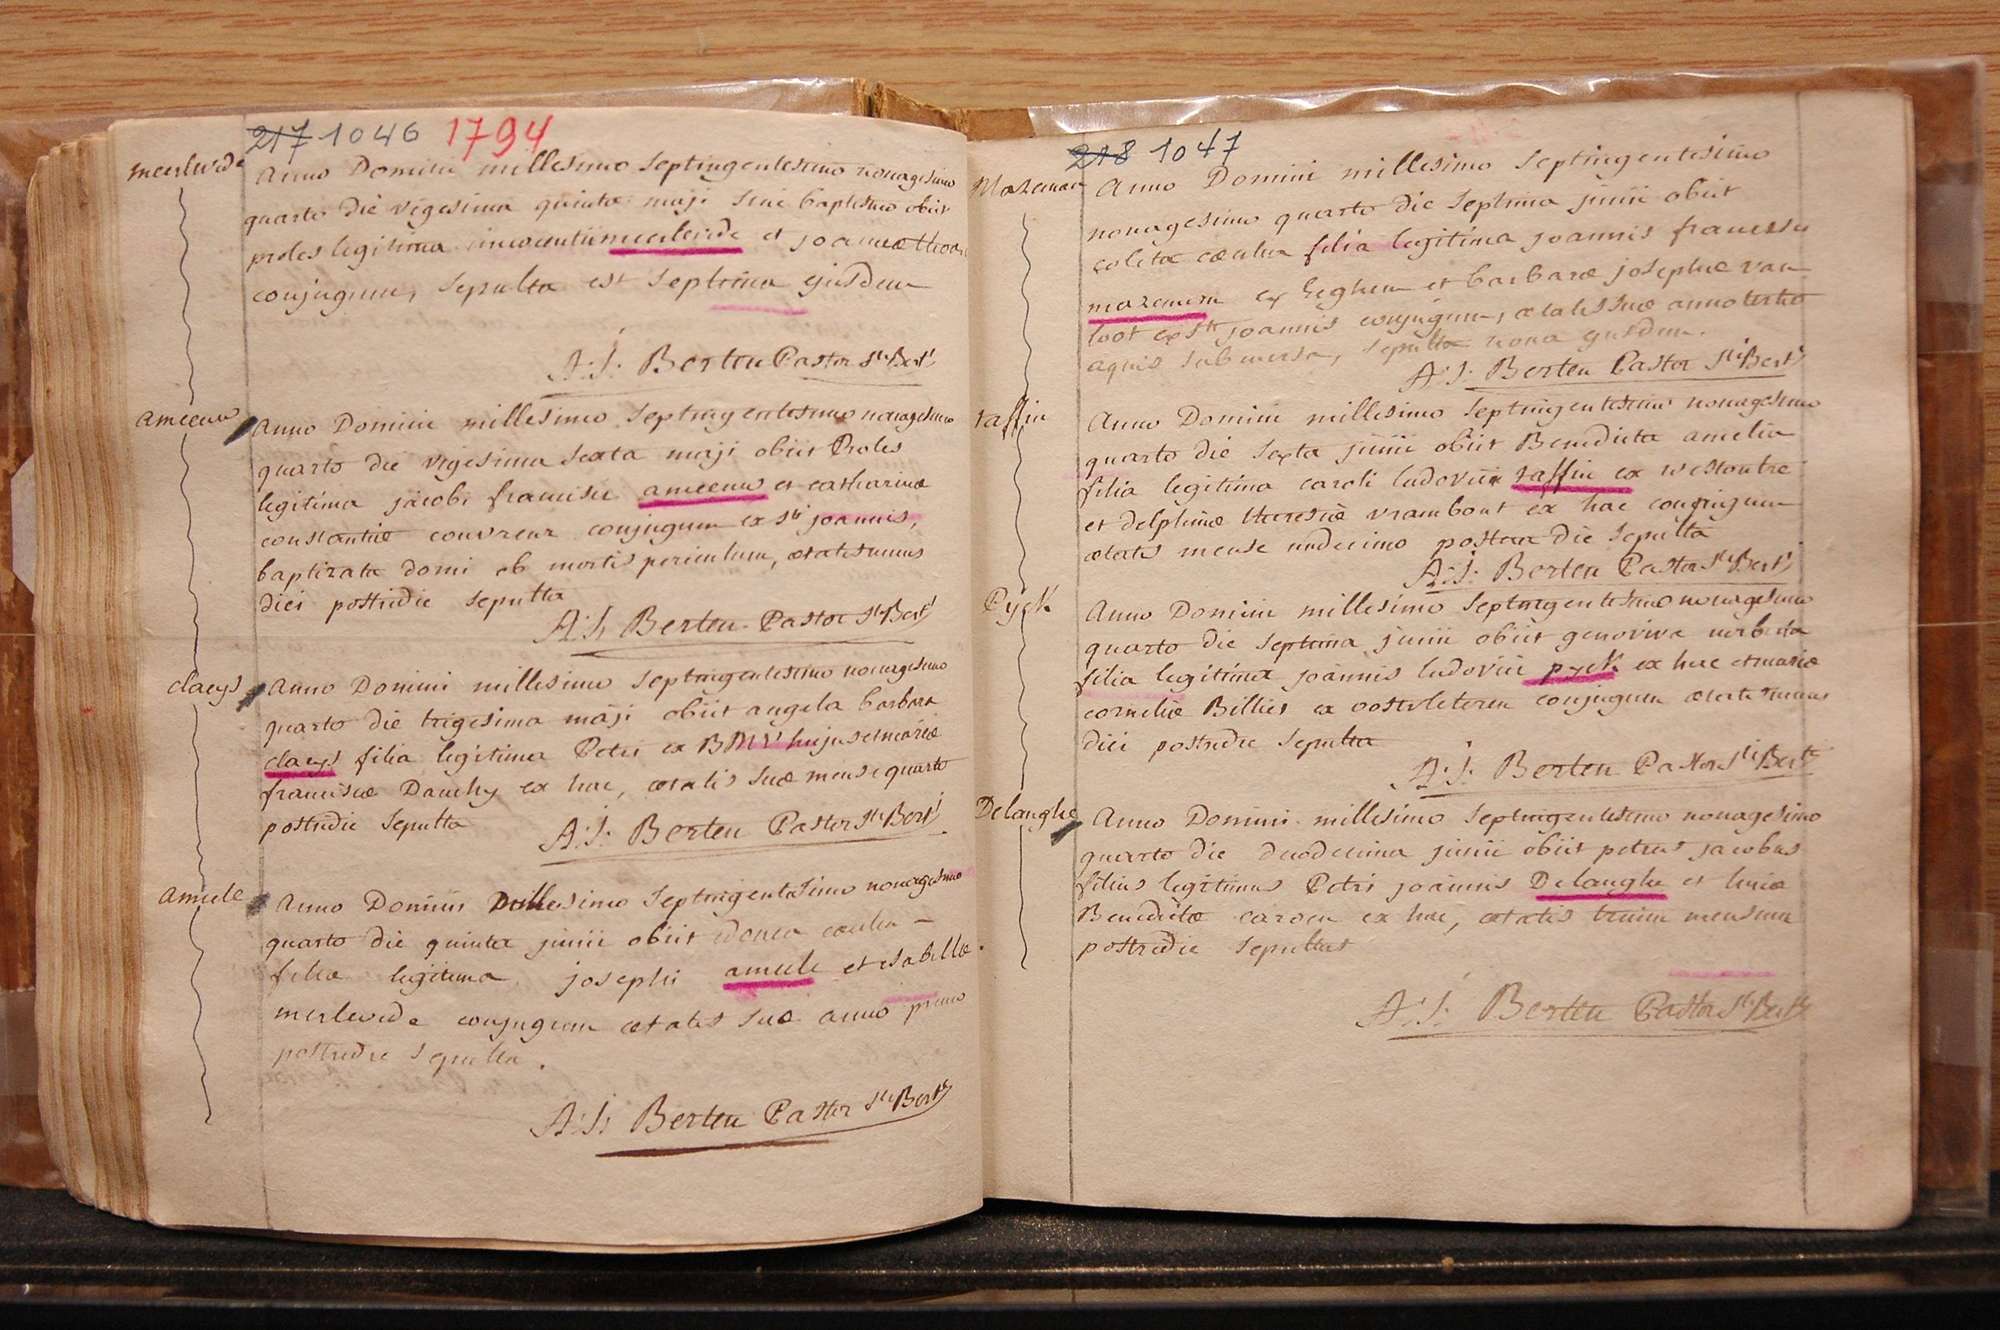 217 1046 1794
meerlevede
Anno Domini millesimo Septingentesimo nonagesimo
quarto die vigesima quinta maji sine baptismo obiit
proles legitima innocentii meerlevede et joannæ
conjugum, sepulta est septima ejusdem
A: J: Berten Pastor Sti Berti
ameeuw
Anno Domini millesimo Septingentesimo nonagesimo
quarto die vigesima sexta maji obiit Proles
legitima jacobi francisci ameeuw et catharinæ
constantiæ couvreur conjugum ex sti joannis,
baptizata domi ob mortis periculum, ætatis unius
diei postridie sepulta
A: J: Berten Pastor Sti Berti
claeys
Anno Domini millesimo Septingentesimo nonagesimo
quarto die trigesima maji obiit angela barbara
claeys filia legitima Petri ex BMV hujus et mariæ
franciscæ Dauchy ex hac, ætatis suæ mense quarto
postridie sepulta
A: J: Berten Pastor Sti Berti
ameele
Anno Domini millesimo Septingentesimo nonagesimo
quarto die quinta junii obiit
filia legitima josephi ameele et isabellæ
merlevede conjugum ætatis suæ anno primo
postridie sepulta.
A: J: Berten Pastor Sti Berti
218 1047
Mazeman
Anno Domini millesimo Septingentesimo
nonagesimo quarto die septima junii obiit
coleta filia legitima joannis francisci
mazeman ex Leghem et barbaræ josephæ van
loot ex sti joannis conjugum, ætatis suæ anno tertio
aquis submersa, sepulta nona ejusdem.
A: J: Berten Pastor Sti Berti
taffin
Anno Domini millesimo Septingentesimo nonagesimo
quarto die sexta junii obiit Benedicta amelia
filia legitima caroli ludovici taffin ex westoutre
et delphinæ theresiæ vrambout ex hac conjugum
ætatis mense undecimo postera die sepulta
A: J: Berten Pastor Sti Berti
Pyck
Anno Domini millesimo Septingentesimo nonagesimo
quarto die septima junii obiit genoviva norberta
filia legitima joannis ludovici pyck ex hac et mariæ
corneliæ Billiet ex oostvleteren conjugum ætatis unius
diei postridie sepulta
A: J: Berten Pastor Sti Berti
Delanghe
Anno Domini millesimo Septingentesimo nonagesimo
quarto die duodecima junii obiit petrus jacobus
filius legitimus Petri joannis Delanghe et
Benedictæ caroen ex hac, ætatis trium mensium
postridie sepultus
A: J: Berten Pastor Sti Berti